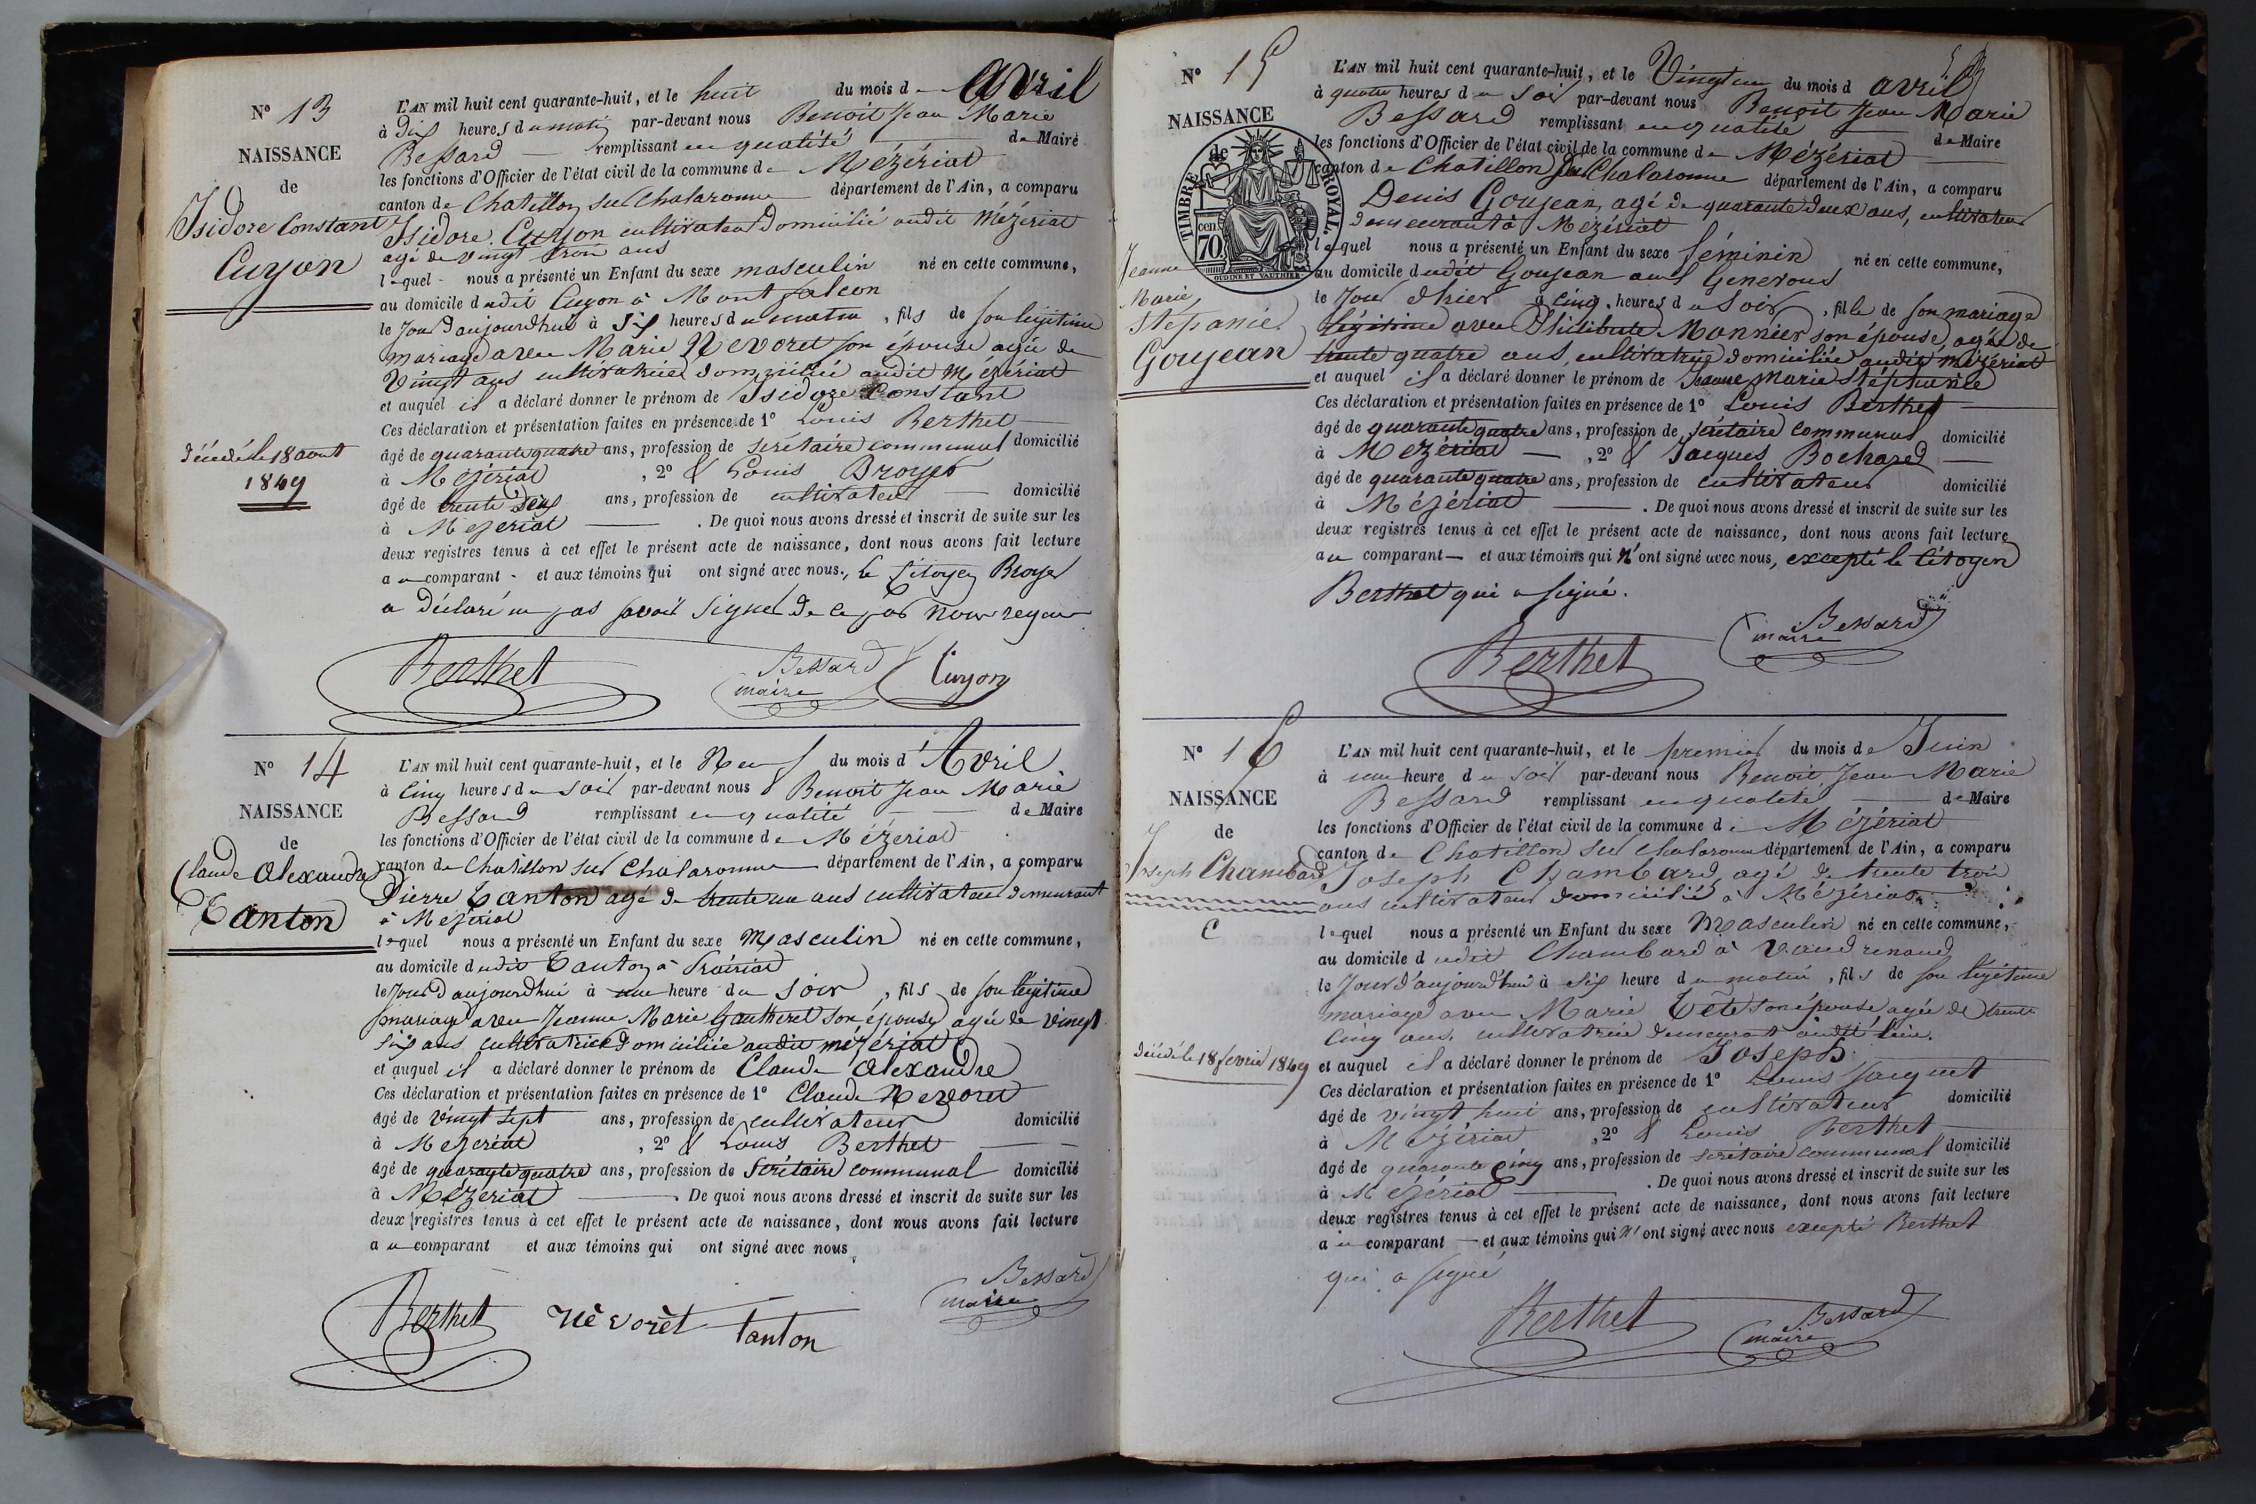 N° 13
NAISSANCE
de
Isidore Constant
Cuyon
décédé le 18 aout
1849
L'AN mil huit cent quarante-huit, et le huit du mois d'Avril
à dix heures du matin par-devant nous Benoit Jean Marie
Bessard remplissant en qualité de Maire
les fonctions d'Officier de l'état civil de la commune de Mézériat
canton de Chatillon sur Chalaronne département de l'Ain, a comparu
Isidore Cuyon cultivateur domicilié audit Mézériat
agé de vingt trois ans
lequel nous a présenté un Enfant du sexe masculin né en cette commune,
au domicile dudit Cuyon à Montfalcon
le jour d'aujourdhui à six heures du matin, fils de son légitime
mariage avec Marie Nevoret son épouse agée de
Vingt ans cultivatrice domiciliée audit Mézériat
et auquel il a déclaré donner le prénom de Isidore Constant
Ces déclaration et présentation faites en présence de 1° Louis Berthet
âgé de quarante quatre ans, profession de secrétaire communal domicilié
à Mézériat, 2° & Louis Broyer
âgé de trente deux ans, profession de cultivateur domicilié
à Mezeriat. De quoi nous avons dressé et inscrit de suite sur les
deux registres tenus à cet effet le présent acte de naissance, dont nous avons fait lecture
au comparant et aux témoins qui ont signé avec nous, le Citoyen Broyer
a déclaré ne pas savoir signer de ce par nous requis
Berthet Bessard maire Cuyon
N° 14
NAISSANCE
de
Claude Alexandre
Tanton
L'AN mil huit cent quarante-huit, et le Neuf du mois d'Avril
à Cinq heures du soir par-devant nous Benoit Jean Marie
Bessard remplissant en qualité de Maire
les fonctions d'Officier de l'état civil de la commune de Mézeriat
canton de Chatillon sur Chalaronne département de l'Ain, a comparu
Pierre Tanton agé de trente un ans cultivateur demeurant
à Mezeriat
lequel nous a présenté un Enfant du sexe Masculin né en cette commune,
au domicile dudit Tanton à
le jour d'aujourdhui à une heure du soir, fils de son légitime
mariage avec Jeanne Marie Gautheret son épouse agée de vingt
six ans cultivatrice domiciliée audit mézériat
et auquel il a déclaré donner le prénom de Claude Alexandre
Ces déclaration et présentation faites en présence de 1° Claude Nevoret
âgé de vingt sept ans, profession de cultivateur domicilié
à Mezeriat, 2° & Louis Berthet
âgé de quarante quatre ans, profession de Secrétaire communal domicilié
à Mézeriat. De quoi nous avons dressé et inscrit de suite sur les
deux registres tenus à cet effet le présent acte de naissance, dont nous avons fait lecture
au comparant et aux témoins qui ont signé avec nous
Berthet Nèvorèt Tanton Bessard maire
N° 15
NAISSANCE
TIMBRE ROYAL.
de
70 cen
OUDINE ET VAUTHIER
Jeanne
Marie
Stépanie
Goujean
L'AN mil huit cent quarante-huit, et le Vingt un du mois d avril
à quatre heures du soir par-devant nous Benoit Jean Marie
Bessard remplissant en qualité de Maire
les fonctions d'Officier de l'état civil de la commune de Mézériat
canton de Chatillon sur Chalaronne département de l'Ain, a comparu
Denis Goujean, agé de quarante deux ans, cultivateur
demeurant à Mézériat
lequel nous a présenté un Enfant du sexe féminin né en cette commune,
au domicile dudit Goujean aux Generoux
le jour d'hier à Cinq heures du soir, fille de son mariage
légitime avec Monnier son épouse, agée de
trente quatre ans, cultivatrice domiciliée audit mézériat
et auquel il a déclaré donner le prénom de Jeanne Marie Stéphanie
Ces déclaration et présentation faites en présence de 1° Louis Berthet
âgé de quarante quatre ans, profession de secrétaire communal domicilié
à Mézériat, 2° & Jacques Bochard
âgé de quarante quatre ans, profession de cultivateur domicilié
à Mézériat. De quoi nous avons dressé et inscrit de suite sur les
deux registres tenus à cet effet le présent acte de naissance, dont nous avons fait lecture
au comparant et aux témoins qui n'ont signé avec nous, excepté le Citoyen
Berthet qui a signé.
Berthet Bessard maire
N° 16
NAISSANCE
de
Joseph Chambard
C
décédé le 18 fevrier 1849
L'AN mil huit cent quarante-huit, et le premier du mois de Juin
à une heure du soir par-devant nous Benoit Jean Marie
Bessard remplissant en qualité de Maire
les fonctions d'Officier de l'état civil de la commune de Mézériat
canton de Chatillon sur Chalaronne département de l'Ain, a comparu
Joseph Chambard, agé de trente trois
ans cultivateur domicilié à Mézériat
lequel nous a présenté un Enfant du sexe Masculin né en cette commune,
au domicile dudit Chambard à Vaudrenand
le jour d'aujourd'hui à six heure du matin, fils de son légitime
mariage avec Marie Tête son épouse agée de trente
cinq ans, cultivatrice demeurant audit lieu.
et auquel il a déclaré donner le prénom de Joseph
Ces déclaration et présentation faites en présence de 1° Louis Jacquet
âgé de vingt huit ans, profession de cultivateur domicilié
à Mézériat, 2° & Louis Berthet
âgé de quarante cinq ans, profession de secrétaire communal domicilié
à Mézériat. De quoi nous avons dressé et inscrit de suite sur les
deux registres tenus à cet effet le présent acte de naissance, dont nous avons fait lecture
au comparant et aux témoins qui n'ont signé avec nous excepté Berthet
qui a signé
Berthet Bessard maire